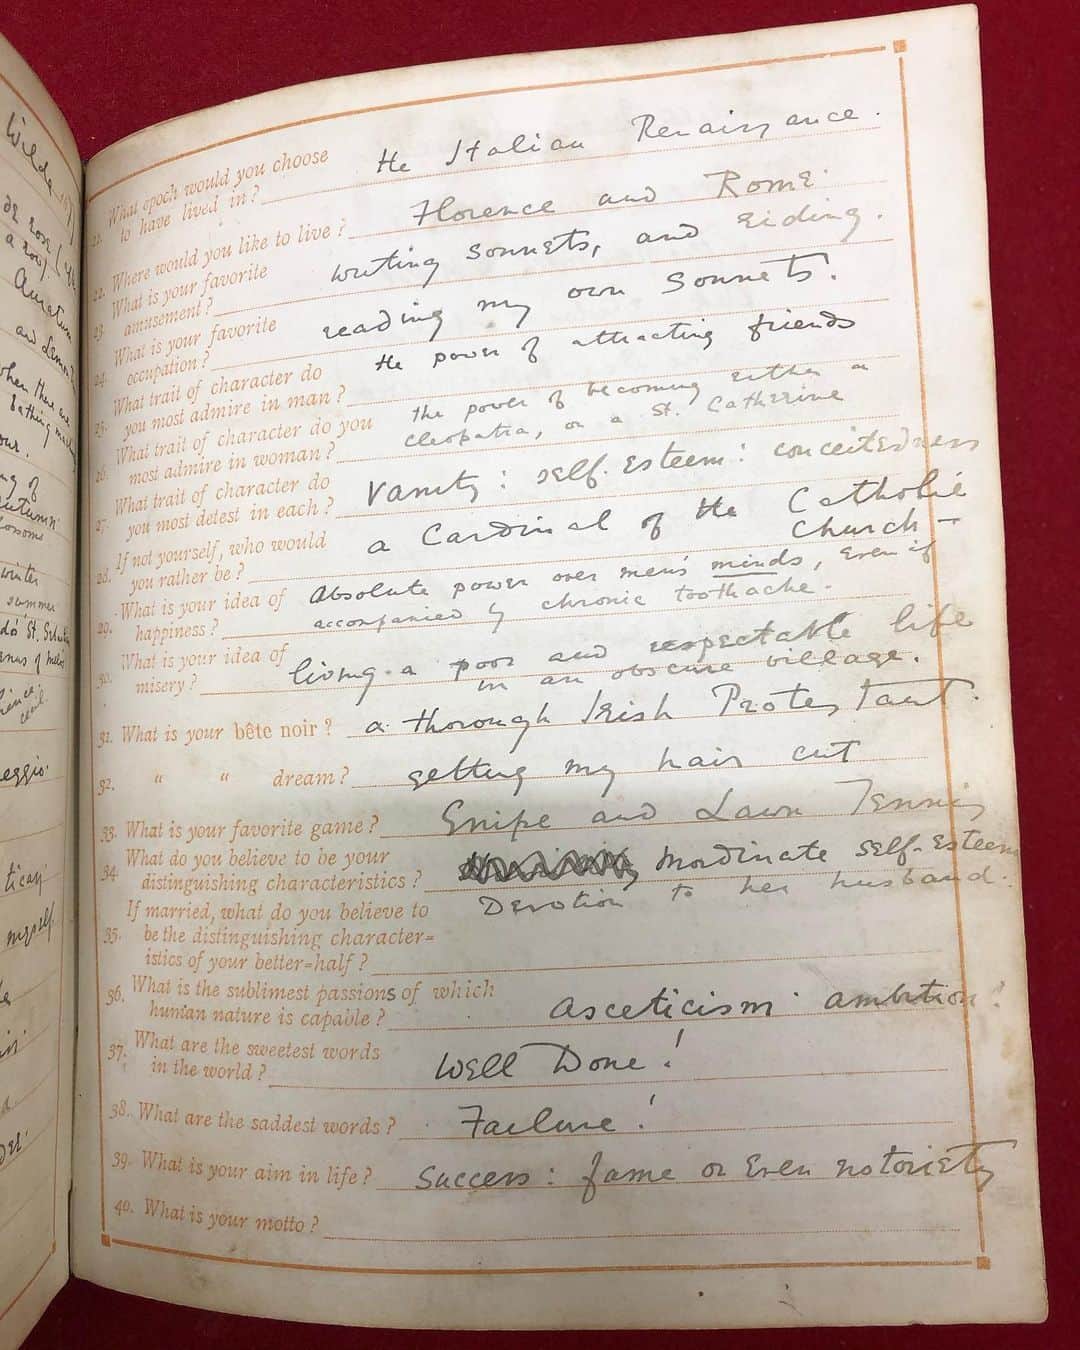 Wilde
a
Amateur
and
when there are
bathing
our.
of
autumn
winter
summer
St.
of
eggio.
myself.
21. What epoch would you choose
to have lived in? the Italian Renaissance.
22. Where would you like to live? Florence and Rome.
23. What is your favorite
amusement? writing sonnets, and riding.
24. What is your favorite
occupation? reading my own sonnets.
25. What trait of character do
you most admire in man? the power of attracting friends
26. What trait of character do you
most admire in woman? the power of becoming either a
cleopatra, or a St. Catherine
27. What trait of character do
you most detest in each? vanity: self-esteem: conceitedness
28. If not yourself, who would
you rather be? a Cardinal of the Catholic
Church—
29. What is your idea of
happiness? Absolute power over men's minds, even if
accompanied by chronic toothache.
30. What is your idea of
misery? living a poor and respectable life
in an obscure village.
31. What is your bête noir? a thorough Irish Protestant.
32. " " dream? getting my hair cut
33. What is your favorite game? Snipe and Lawn Tennis
34. What do you believe to be your
distinguishing characteristics? Inordinate self-esteem
35. If married, what do you believe to
be the distinguishing character=
istics of your better=half? Devotion to her husband.
36. What is the sublimest passions of which
human nature is capable? asceticism ambition!
37. What are the sweetest words
in the world? Well Done!
38. What are the saddest words? Failure!
39. What is your aim in life? Success: fame or even notoriety
40. What is your motto?